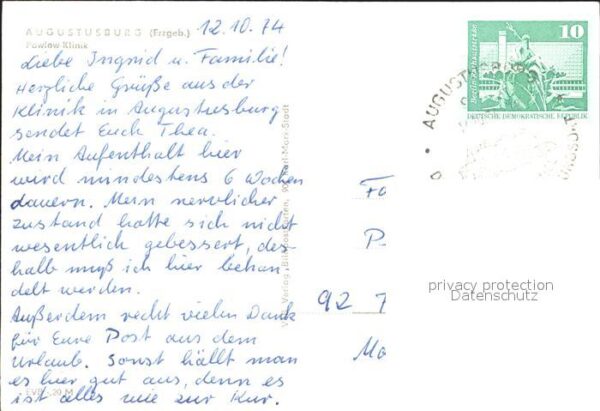 AUGUSTUSBURG (Erzgeb.)
Pawlow-Klinik
12.10.74
Liebe Ingrid u. Familie!
Herzliche Grüße aus der
Klinik in Augustusburg
sendet Euch Thea.
Mein Aufenthalt hier
wird mindestens 6 Wochen
dauern. Mein nervlicher
zustand hatte sich nicht
wesentlich gebessert, des-
halb muß ich hier behan
delt werden.
Außerdem recht vielen Dank
für Eure Post aus dem
Urlaub. Sonst hällt man
es hier gut aus, denn es
ist alles wie zur Kur.
Bild Karl-Marx-Stadt
10
DEUTSCHE DEMOKRATISCHE REPUBLIK
AUGUSTUSBURG
Fa
P
92
Ma
privacy protection
Datenschutz